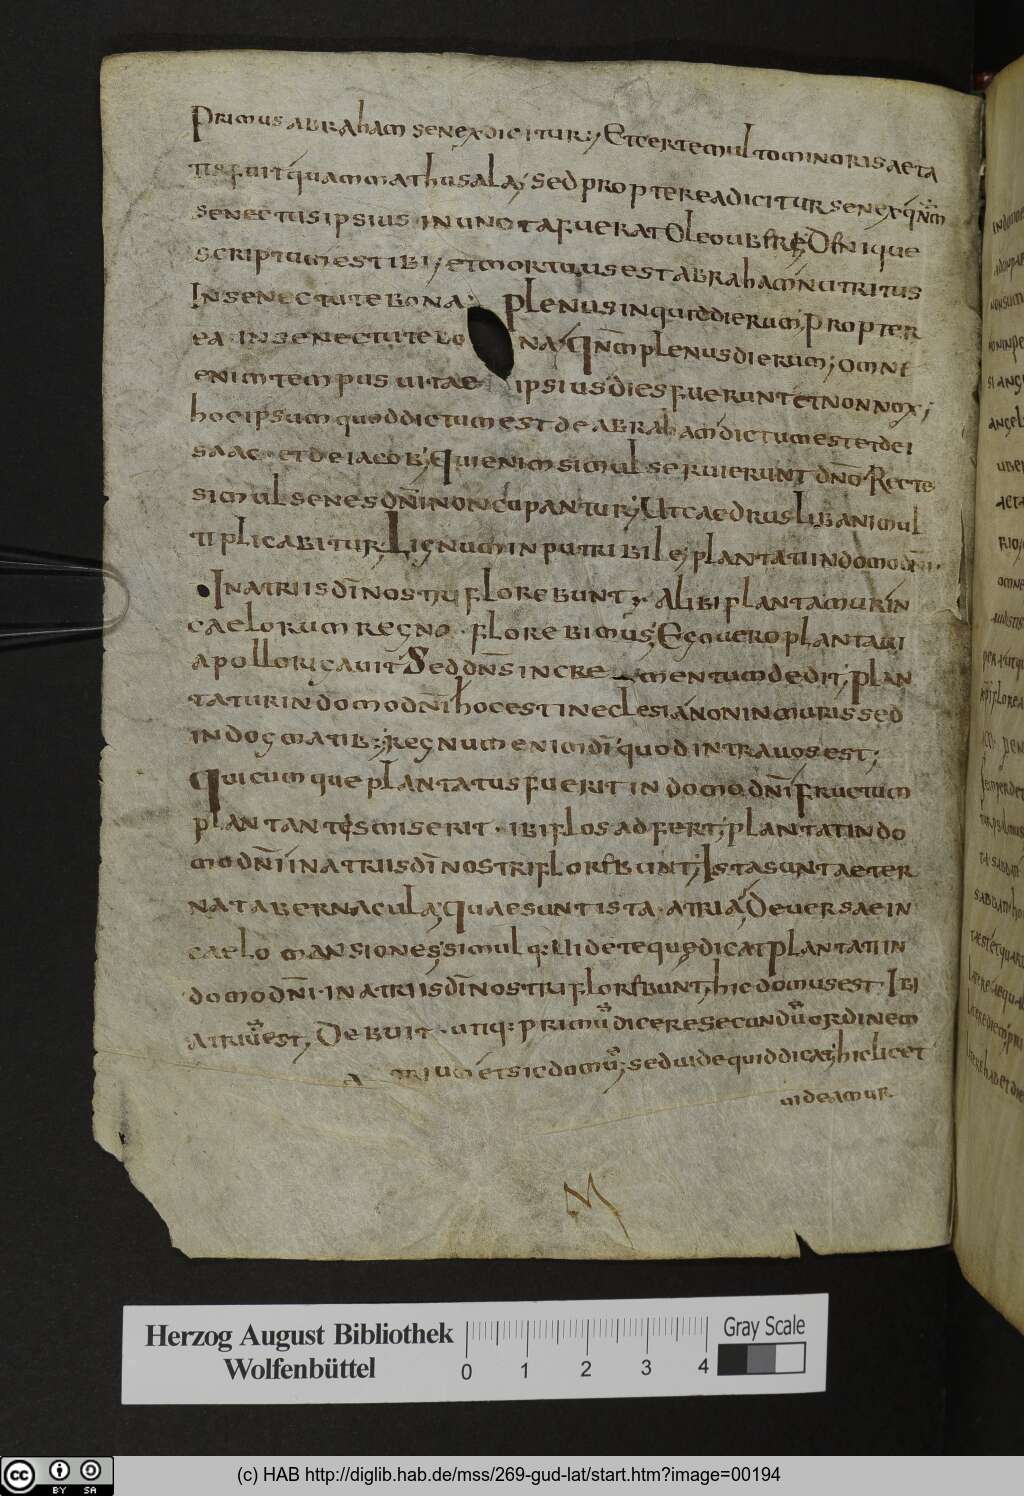 Primus abraham senex dicitur; Et certe multo minoris aeta
tis fuit quam mathusala; sed propterea dicitur senex qnm
senectus ipsius in uno ta fuerat oleo ubere; Denique
scriptum est ibi; et mortuus est abraham nutritus
In senectute bona; plenus inquid dierum; propter
ea in senectute bo na; qnm plenus dierum; omne
enim tempus uitae ipsius dies fuerunt et non nox;
hoc ipsum quod dictum est de abraham dictum est et de i
saac et de iacob; qui enim simul seruierunt dno Recte
simul senes dni noncupantur; Ut caedrus libani mul
tiplicabitur; Lignum inputribile; plantati in domo dni
In atriis di nostri florebunt; Alibi plantamur in
caelorum regno florebimus; Ego uero plantaui
apollo rigauit Sed dns incrementum dedit; plan
tatur in domo dni hoc est in eclesia non in muris sed
in dogmatib; regnum enim di quod intra uos est;
quicumque plantatus fuerit in domo dni fructum
plantantes miserit ibi flos adfert; plantati in do
mo dni in atriis di nostri florebunt; Ista sunt aeter
na tabernacula; quae sunt ista atria; Deuersae in
caelo mansiones simul q: Uidete quod dicat plantati in
domo dni in atriis di nostri florebunt; hic domus est Ibi
atriu est; Debuit utiq: primu dicere secundu ordinem
atrium et sic domu; sed uide quid dicat; hic licet
uideamur
M
Herzog August Bibliothek
Wolfenbüttel
0 1 2 3 4
Gray Scale
cc BY SA
(c) HAB http://diglib.hab.de/mss/269-gud-lat/start.htm?image=00194